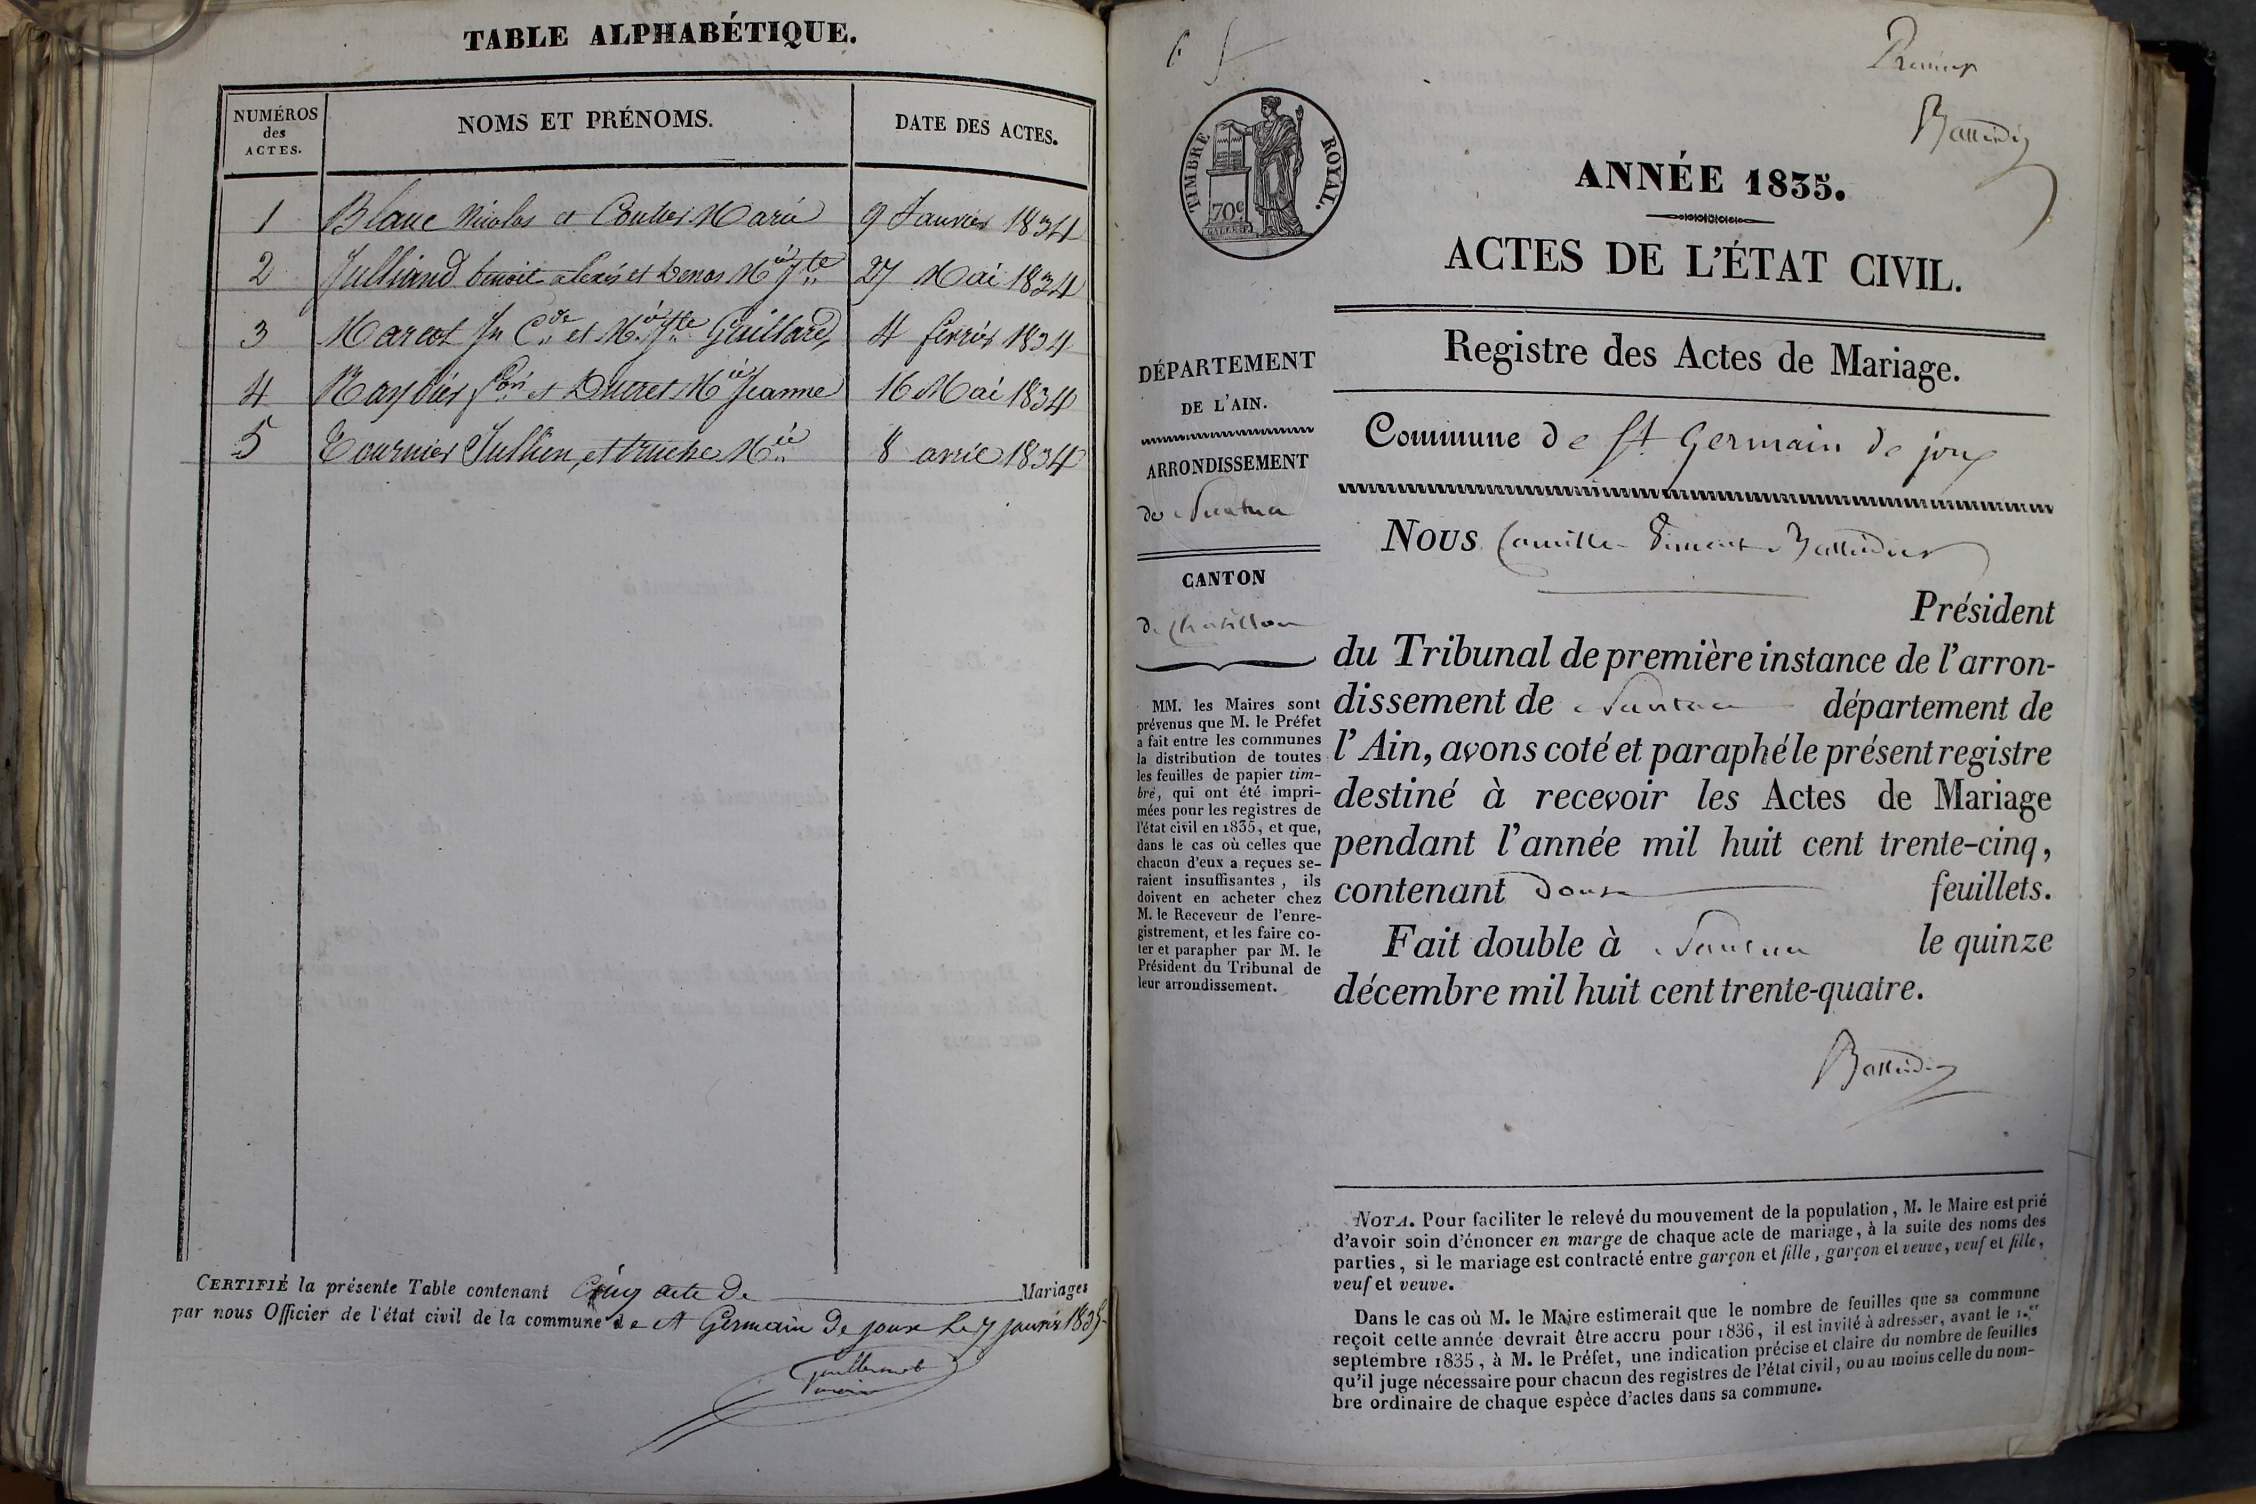 TABLE ALPHABÉTIQUE.
NUMÉROS des ACTES. NOMS ET PRÉNOMS. DATE DES ACTES.
1 Blanc Nicolas et Coutier Marie 9 Janvier 1834
2 Julliand benoit alexis et Denos Mie Jte 27 Mai 1834
3 Marcot Jn Cde et Mie Jte Guillard 4 fevrier 1834
4 et Ducret Mie Jeanne 16 Mai 1834
5 Tournier Jullien, et truche Mie 8 avril 1834
CERTIFIÉ la présente Table contenant Cinq acte de Mariages
par nous Officier de l'état civil de la commune de St Germain de joux le 7 janvier 1835
Premier
ANNÉE 1835.
ACTES DE L'ÉTAT CIVIL.
TIMBRE ROYAL.
70c
Registre des Actes de Mariage.
DÉPARTEMENT
DE L'AIN.
ARRONDISSEMENT
de Nantua
CANTON
de Chatillon
MM. les Maires sont
prévenus que M. le Préfet
a fait entre les communes
la distribution de toutes
les feuilles de papier tim-
bré, qui ont été impri-
mées pour les registres de
l'état civil en 1835, et que,
dans le cas où celles que
chacun d'eux a reçues se-
raient insuffisantes, ils
doivent en acheter chez
M. le Receveur de l'enre-
gistrement, et les faire co-
ter et parapher par M. le
Président du Tribunal de
leur arrondissement.
Commune de St Germain de joux
Nous Camille
Président
du Tribunal de première instance de l'arron-
dissement de Nantua département de
l'Ain, avons coté et paraphé le présent registre
destiné à recevoir les Actes de Mariage
pendant l'année mil huit cent trente-cinq,
contenant Douze feuillets.
Fait double à Nantua le quinze
décembre mil huit cent trente-quatre.
NOTA. Pour faciliter le relevé du mouvement de la population, M. le Maire est prié
d'avoir soin d'énoncer en marge de chaque acte de mariage, à la suite des noms des
parties, si le mariage est contracté entre garçon et fille, garçon et veuve, veuf et fille,
veuf et veuve.
Dans le cas où M. le Maire estimerait que le nombre de feuilles que sa commune
reçoit cette année devrait être accru pour 1836, il est invité à adresser, avant le 1.er
septembre 1835, à M. le Préfet, une indication précise et claire du nombre de feuilles
qu'il juge nécessaire pour chacun des registres de l'état civil, ou au moins celle du nom-
bre ordinaire de chaque espèce d'actes dans sa commune.